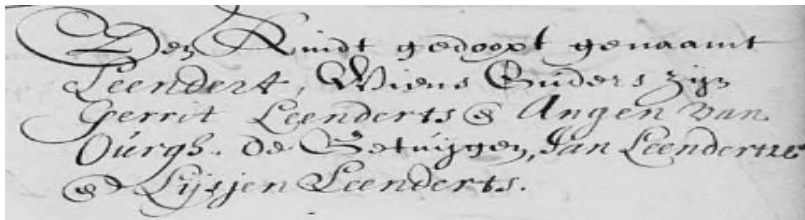 Den Kindt gedoopt genaamt
Leendert, Wiens Ouders zijn
Gerrit Leenderts & Angen van
Ourgh. de Getuijgen, Jan Leendertze
& Lijsjen Leenderts.